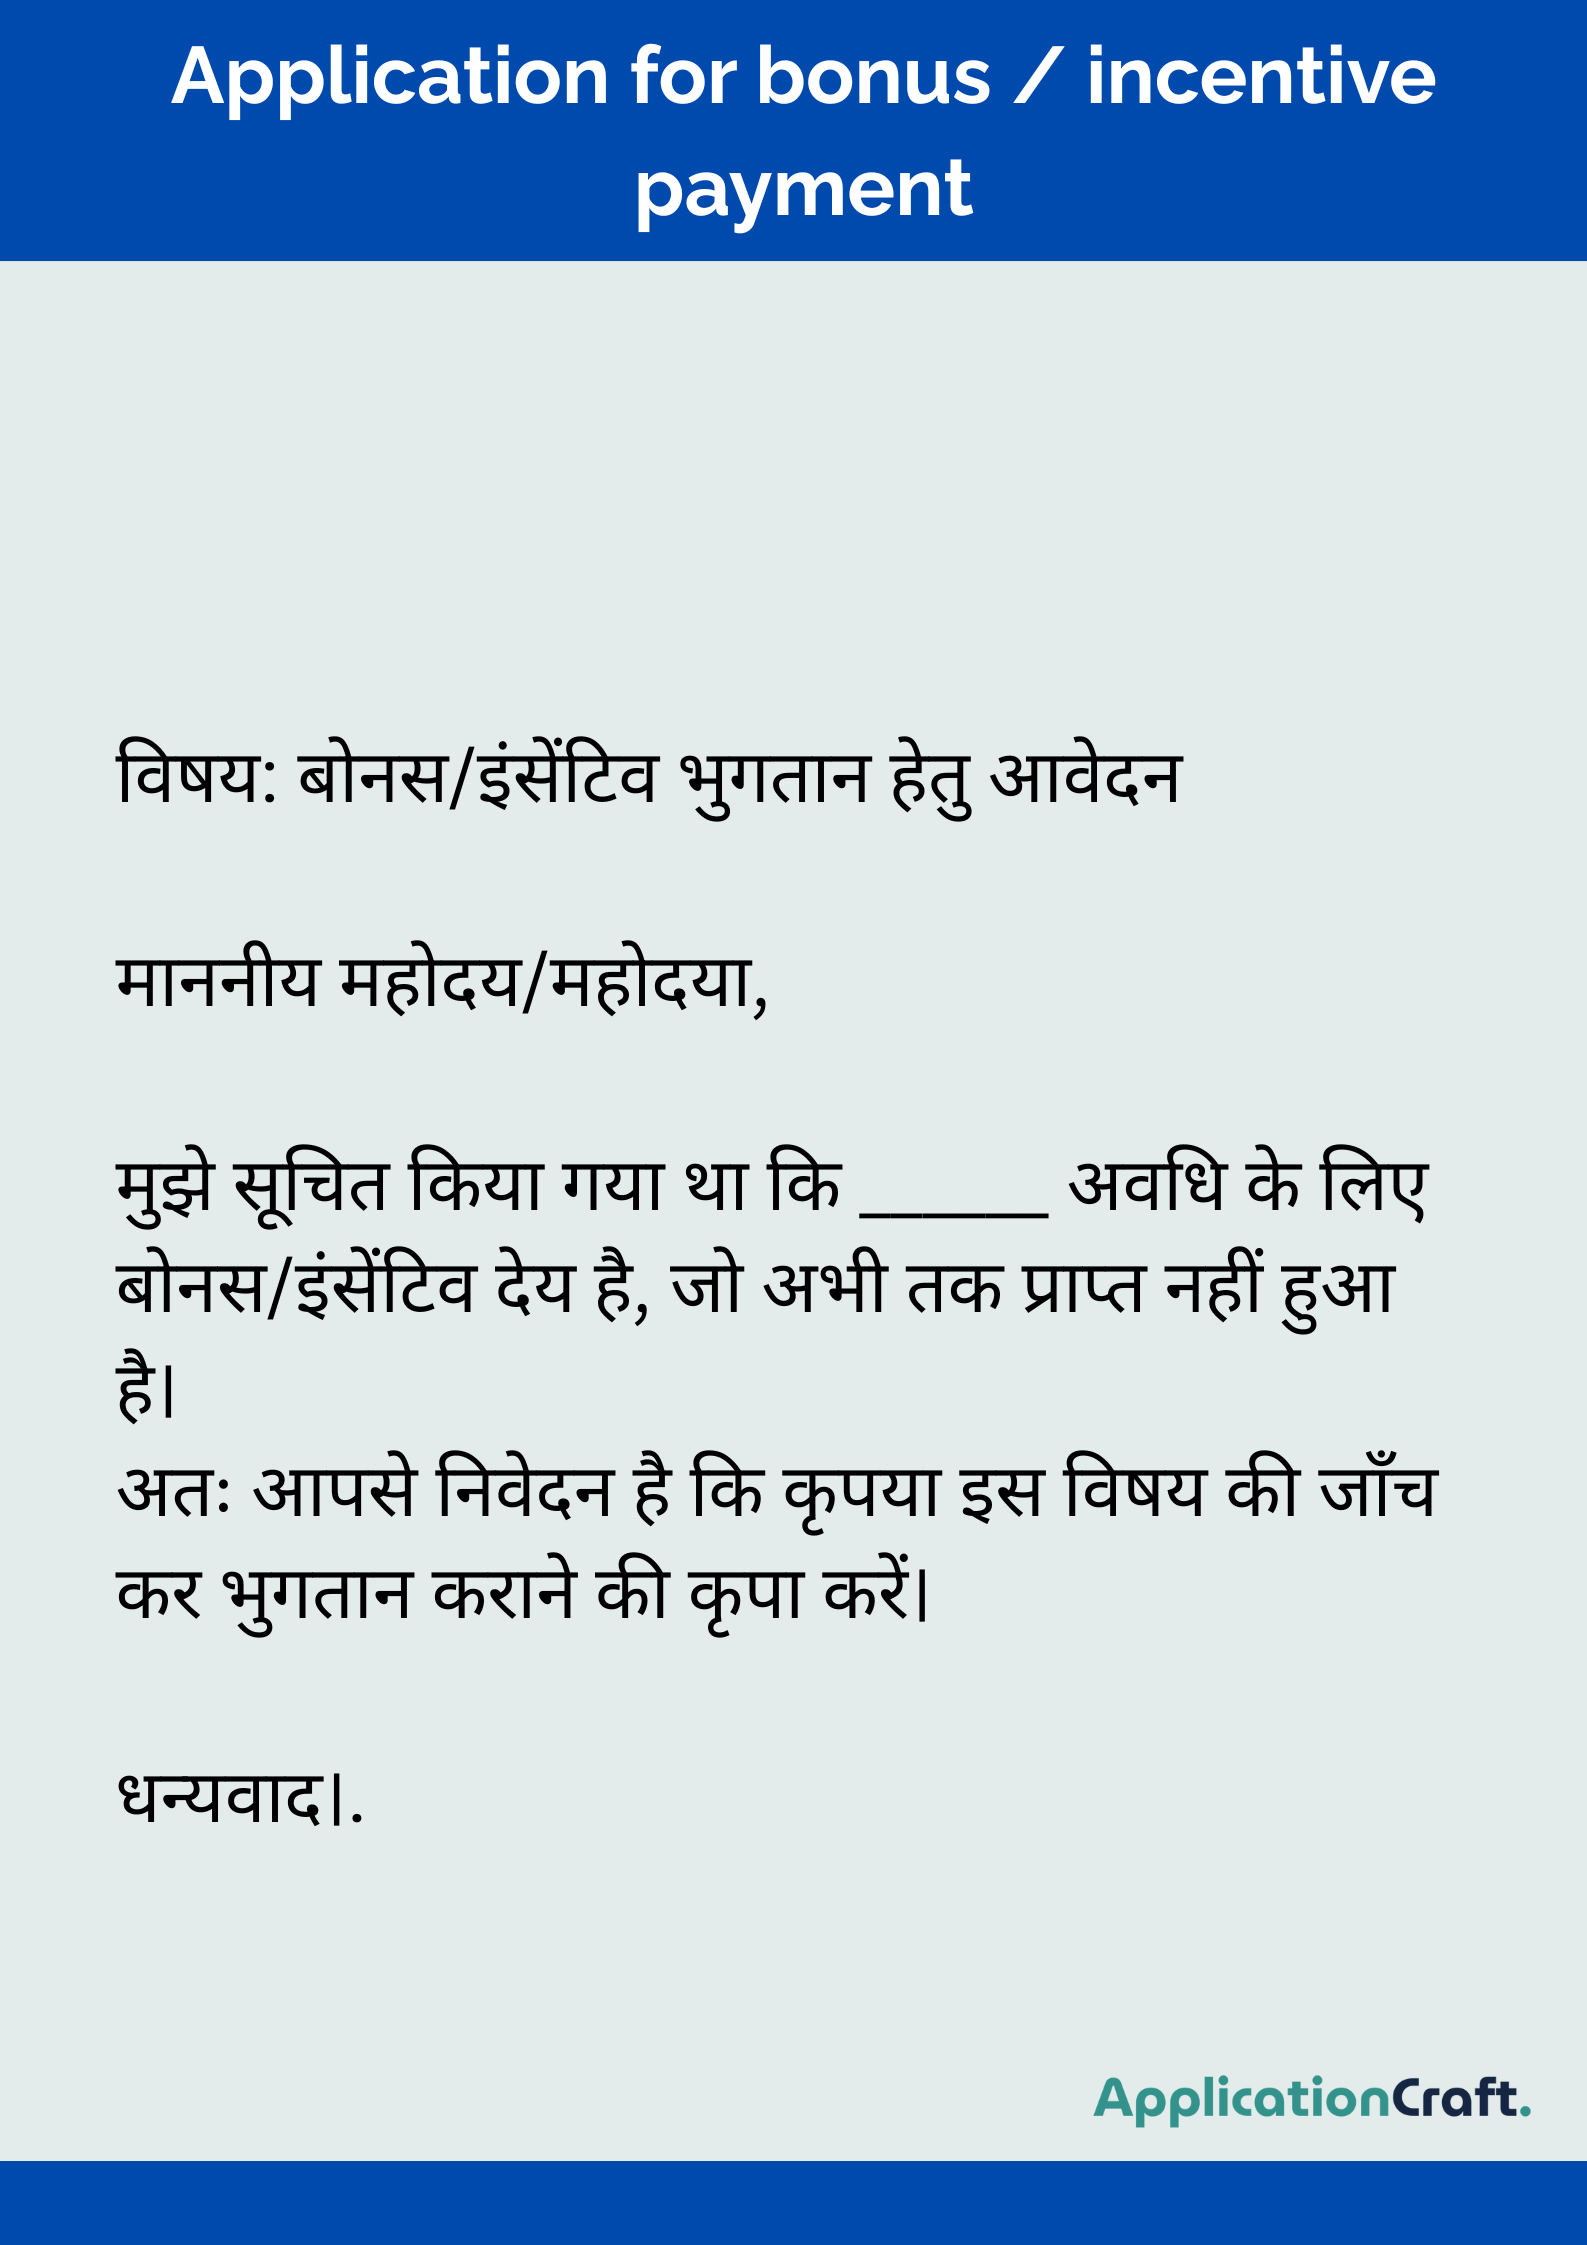 Application for bonus / incentive
payment
विषय: बोनस/इंसेंटिव भुगतान हेतु आवेदन
माननीय महोदय/महोदया,
मुझे सूचित किया गया था कि ______ अवधि के लिए
बोनस/इंसेंटिव देय है, जो अभी तक प्राप्त नहीं हुआ
है।
अतः आपसे निवेदन है कि कृपया इस विषय की जाँच
कर भुगतान कराने की कृपा करें।
धन्यवाद।.
ApplicationCraft.